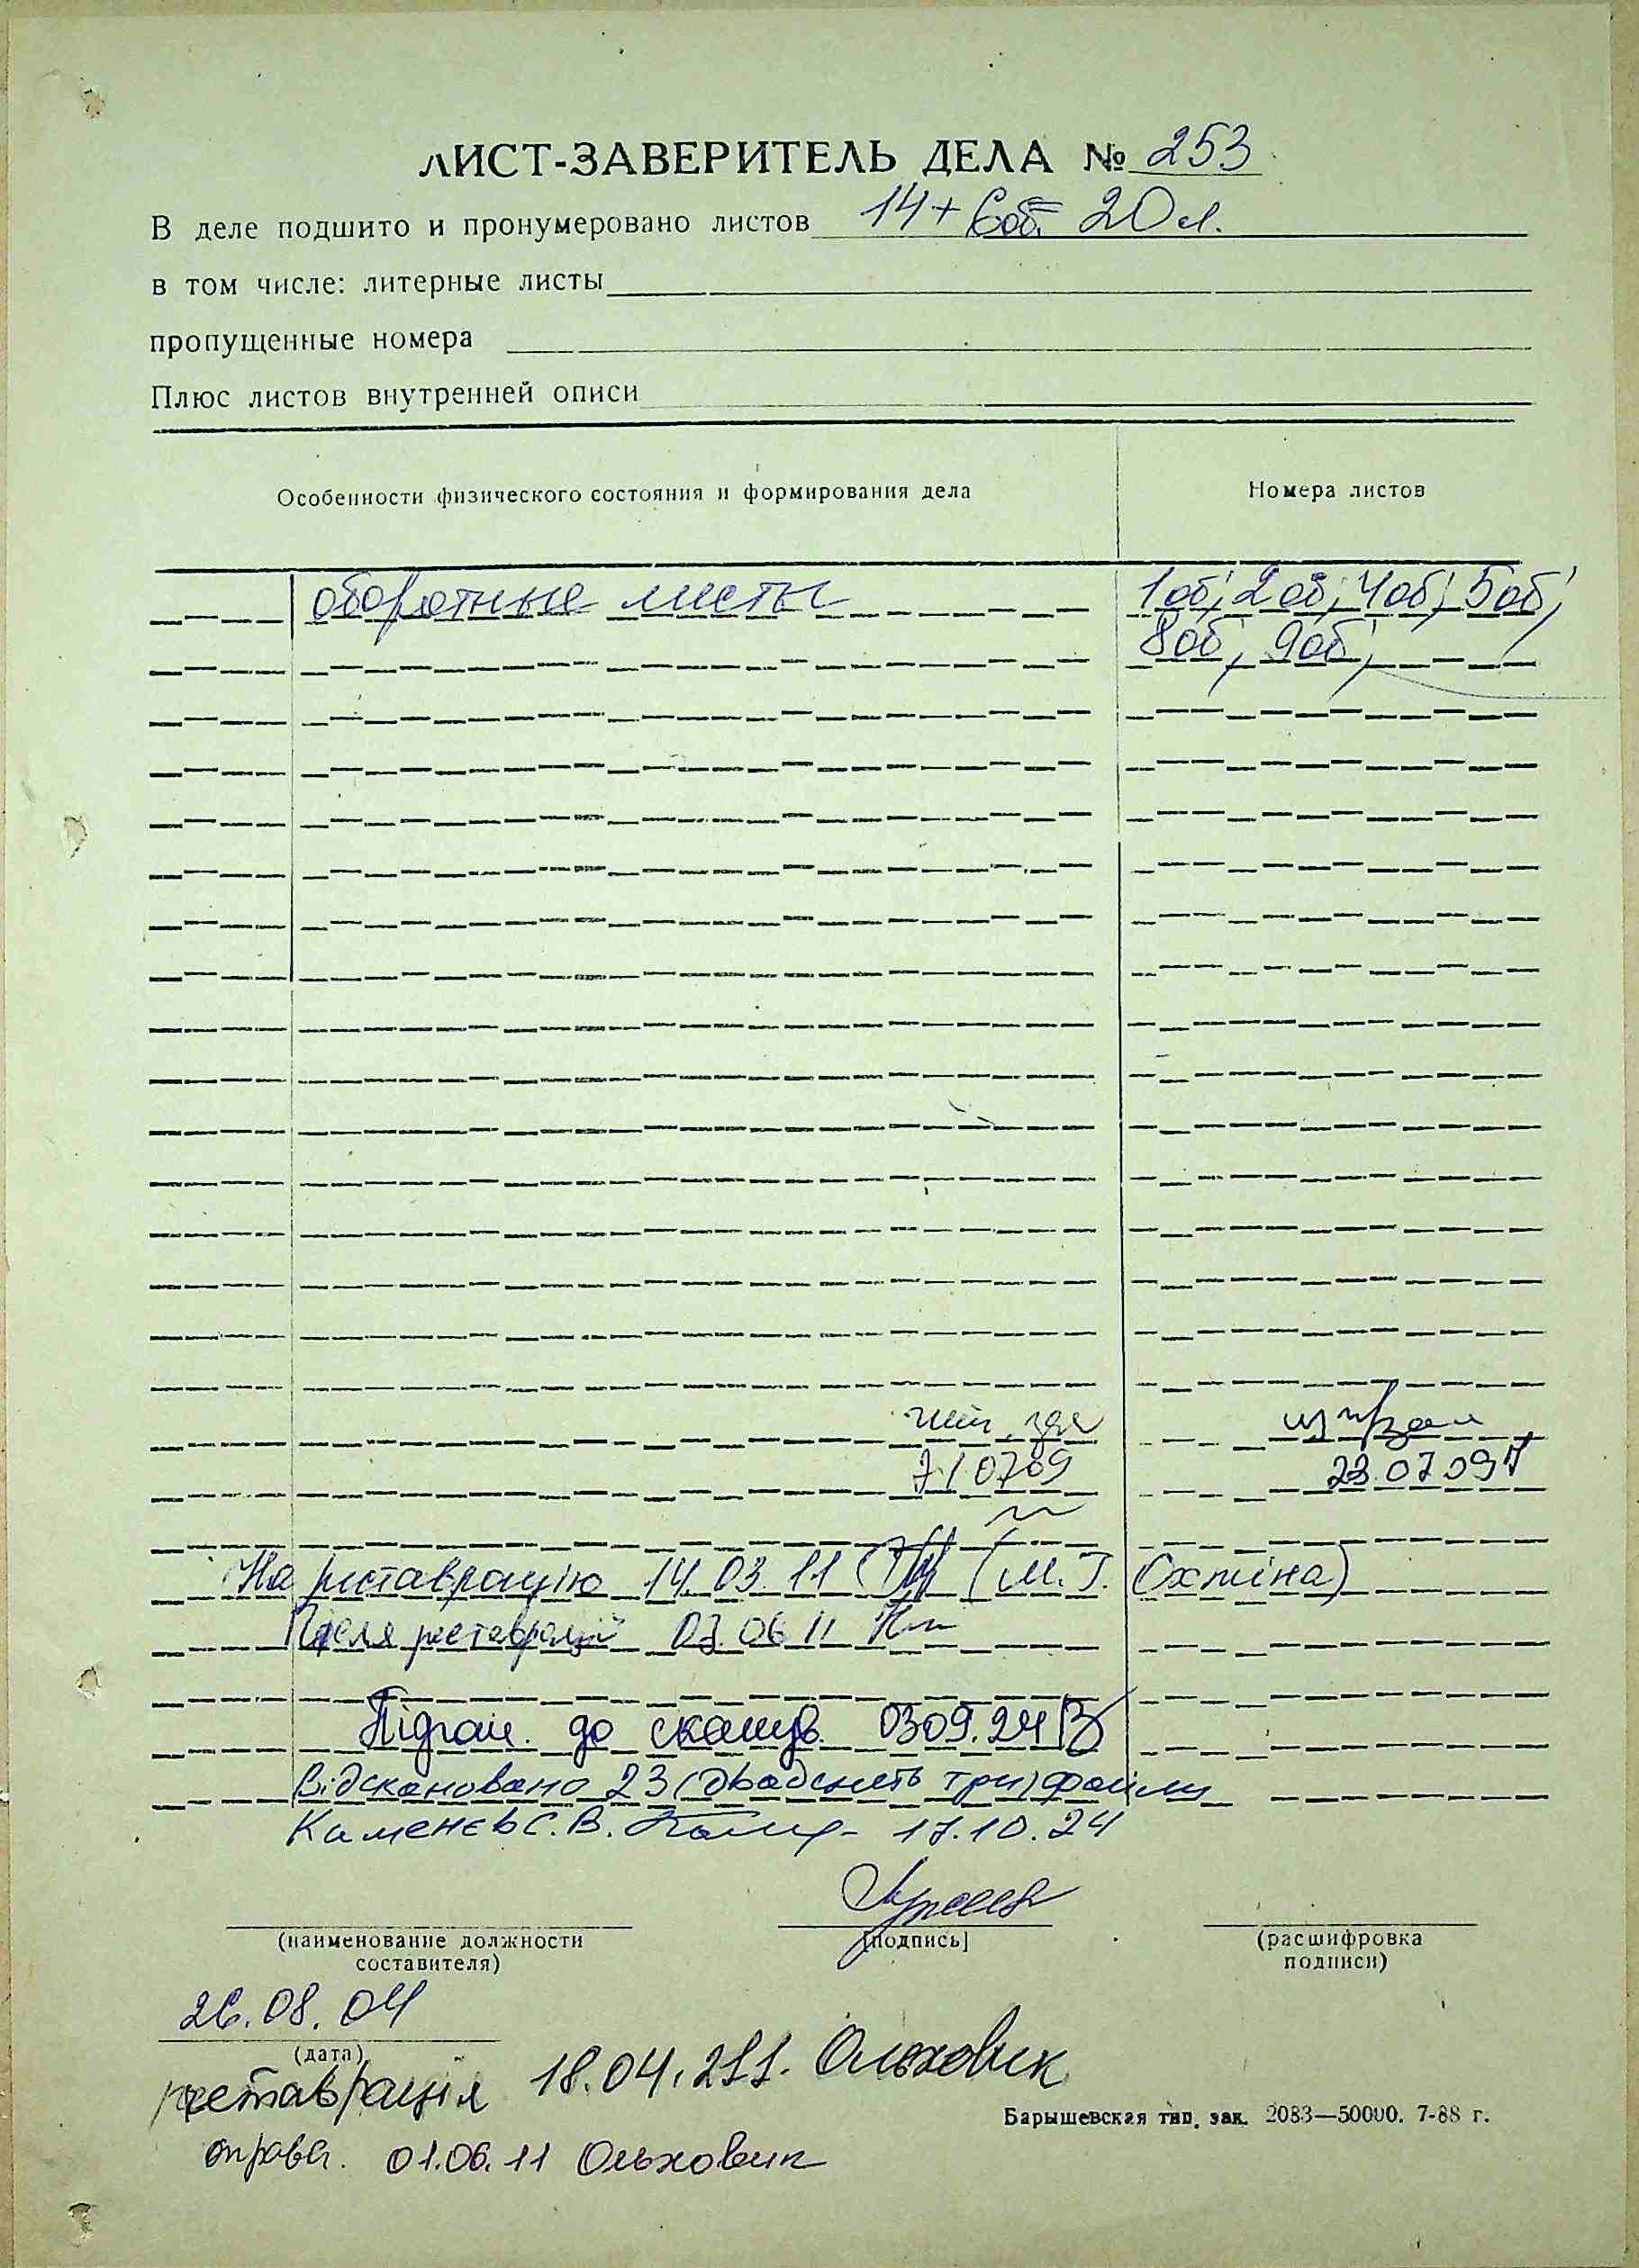 ЛИСТ-ЗАВЕРИТЕЛЬ ДЕЛА № 253
В деле подшито и пронумеровано листов 14+6об= 20 л.
в том числе: литерные листы
пропущенные номера
Плюс листов внутренней описи
Особенности физического состояния и формирования дела Номера листов
оборотные листы 1об, 2об, 4об, 5об,
8об, 9об,
23.07.09
На реставрацію 14.03.11 (М.І. Охтіна)
Після реставрації 03.06 11
Підгот. до сканув. 03 09.24
Відскановано 23 (двадцять три) файли
Каменєв С.В. 17.10.24
(наименование должности составителя) (подпись) (расшифровка подписи)
26.08.04
(дата)
реставрація 18.04.211. Ольховик
оправа. 01.06.11 Ольховик
Барышевская тип. зак. 2083—50000. 7-88 г.